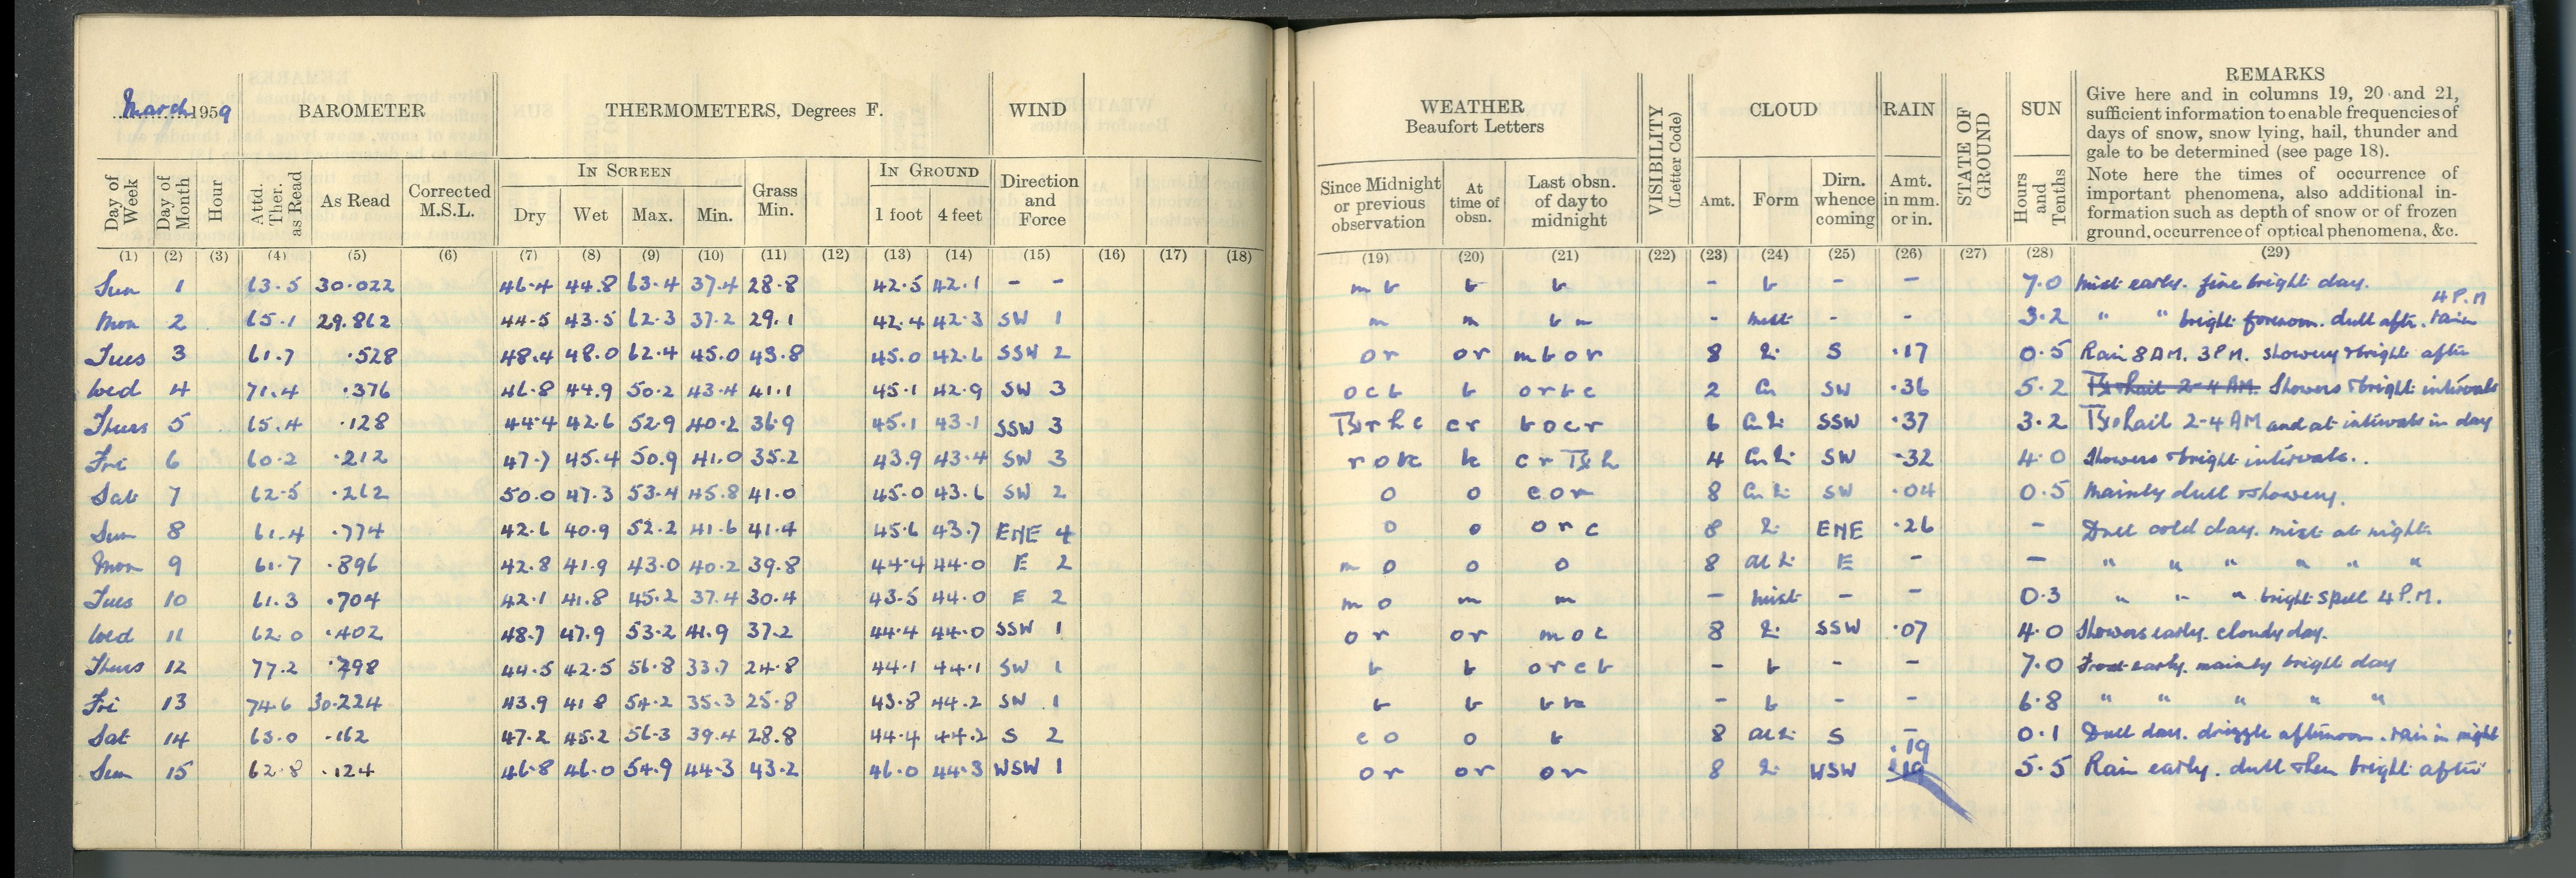 March 1959 BAROMETER THERMOMETERS, Degrees F. WIND
IN SCREEN IN GROUND
Day of Week Day of Month Hour Attd. Ther. as Read As Read Corrected M.S.L. Dry Wet Max. Min. Grass Min. 1 foot 4 feet Direction and Force
(1) (2) (3) (4) (5) (6) (7) (8) (9) (10) (11) (12) (13) (14) (15) (16) (17) (18)
Sun 1 63.5 30.022 46.4 44.8 63.4 37.4 28.8 42.5 42.1 - -
Mon 2 65.1 29.862 44.5 43.5 62.3 37.2 29.1 42.4 42.3 SW 1
Tues 3 61.7 .528 48.4 48.0 62.4 45.0 43.8 45.0 42.6 SSW 2
Wed 4 71.4 .376 46.8 44.9 50.2 43.4 41.1 45.1 42.9 SW 3
Thurs 5 65.4 .128 44.4 42.6 52.9 40.2 36.9 45.1 43.1 SSW 3
Fri 6 60.2 .212 47.7 45.4 50.9 41.0 35.2 43.9 43.4 SW 3
Sat 7 62.5 .262 50.0 47.3 53.4 45.8 41.0 45.0 43.6 SW 2
Sun 8 61.4 .774 42.6 40.9 52.2 41.6 41.4 45.6 43.7 ENE 4
Mon 9 61.7 .896 42.8 41.9 43.0 40.2 39.8 44.4 44.0 E 2
Tues 10 61.3 .704 42.1 41.8 45.2 37.4 30.4 43.5 44.0 E 2
Wed 11 62.0 .402 48.7 47.9 53.2 41.9 37.2 44.4 44.0 SSW 1
Thurs 12 77.2 .798 44.5 42.5 56.8 33.7 24.8 44.1 44.1 SW 1
Fri 13 74.6 30.224 43.9 41.8 54.2 35.3 25.8 43.8 44.2 SW 1
Sat 14 63.0 .162 47.2 45.2 56.3 39.4 28.8 44.4 44.2 S 2
Sun 15 62.8 .124 46.8 46.0 54.9 44.3 43.2 46.0 44.3 WSW 1
WEATHER Beaufort Letters VISIBILITY (Letter Code) CLOUD RAIN STATE OF GROUND SUN REMARKS
Give here and in columns 19, 20 and 21,
sufficient information to enable frequencies of
days of snow, snow lying, hail, thunder and
gale to be determined (see page 18).
Note here the times of occurrence of
important phenomena, also additional in-
formation such as depth of snow or of frozen
ground, occurrence of optical phenomena, &c.
Since Midnight or previous observation At time of obsn. Last obsn. of day to midnight Amt. Form Dirn. whence coming Amt. in mm. or in. Hours and Tenths
(19) (20) (21) (22) (23) (24) (25) (26) (27) (28) (29)
m b b b - b - - 7.0 Mist early. fine bright day.
m m b m - mist - - 3.2 " " bright forenoon. dull after. rain 4 P.M
o r o r m b o r 8 S .17 0.5 Rain 8 AM. 3 P.M. Showery & bright after
o c b b o r b c 2 Cu SW .36 5.2 Showers & bright intervals
c r b o c r 6 SSW .37 3.2 hail 2-4 AM and at intervals in day
4 SW .32 4.0 Showers & bright intervals.
o o c o r 8 SW .04 0.5 Mainly dull & showery.
o o o r c 8 ENE .26 - Dull cold day. mist at night.
m o o o 8 E - - " " " " " "
m o m m - mist - - 0.3 " " " bright spell 4 P.M.
o r o r m o c 8 SSW .07 4.0 Showers early. cloudy day.
b b o r c b - b - - 7.0 Frost early. mainly bright day
b b - b - - 6.8 " " " " "
c o o b 8 S - 0.1 Dull day. drizzle afternoon. rain in night
o r o r o r 8 WSW .19 .19 5.5 Rain early. dull then bright after